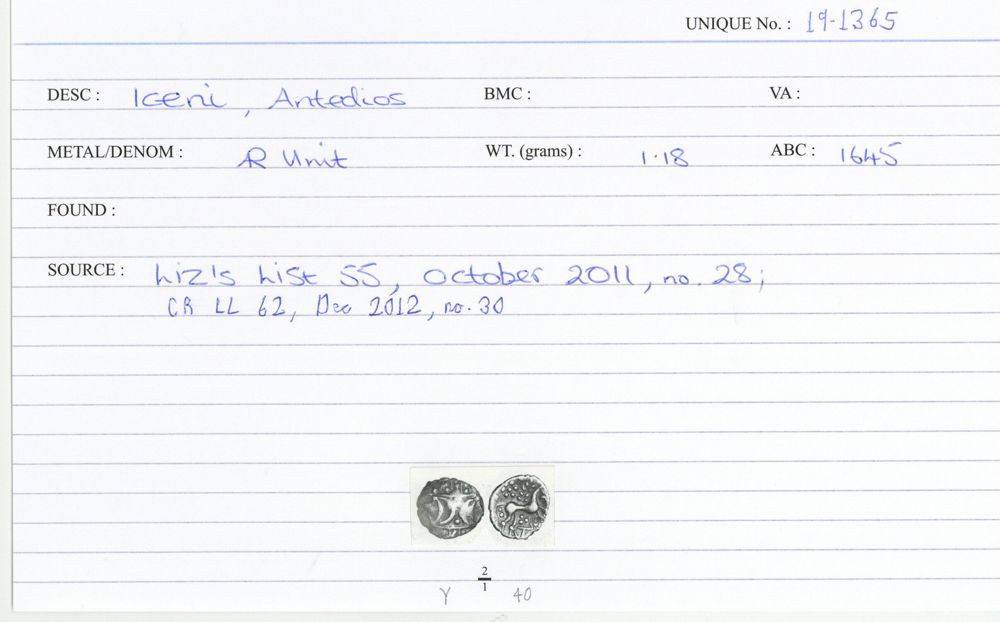 UNIQUE No. : 19-1365
DESC : Iceni, Antedios BMC : VA :
METAL/DENOM : AR Unit WT. (grams) : 1.18 ABC : 1645
FOUND :
SOURCE : Liz's List 55, October 2011, no. 28;
CR LL 62, Dec 2012, no. 30
2
1
Y 40